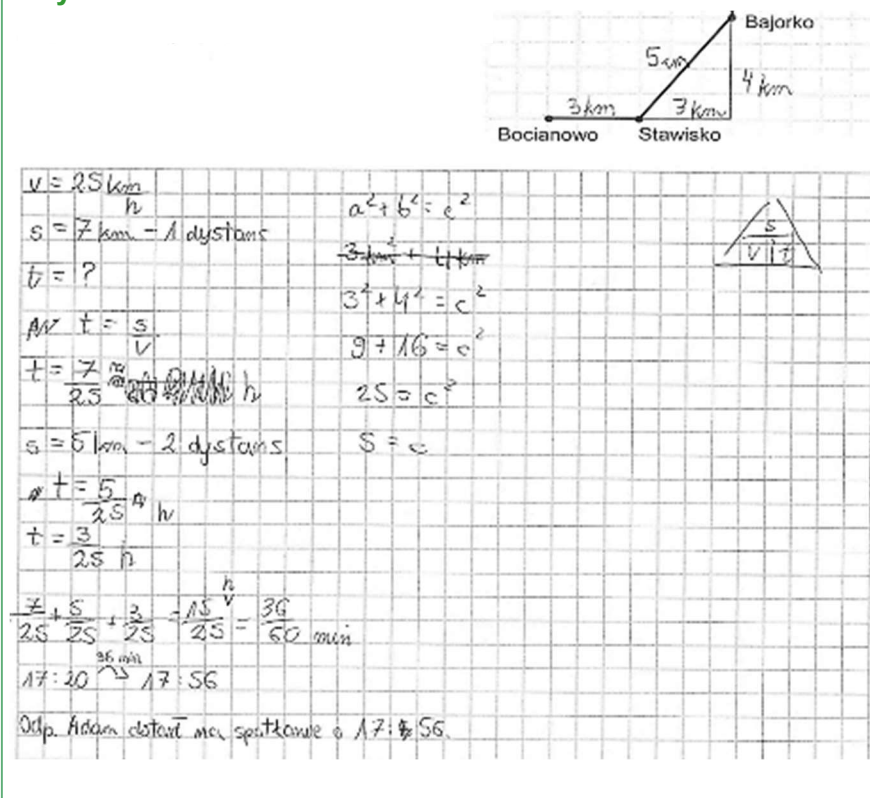 Bajorko
5 km
4 km
3 km
3 km
Bocianowo
Stawisko
v = 25 km/h
s = 7 km - 1 dystans
t = ?
t = s/v
t = 7/25 h
s = 5 km - 2 dystans
t = 5/25 h
t = 3/25 h
7/25 + 5/25 + 3/25 = 15/25 h = 36/60 min
36 min
17:20 17:56
Odp. Adam dotarł na spotkanie o 17:56.
a² + b² = c²
3² + 4² = c²
9 + 16 = c²
25 = c²
5 = c
s
v t